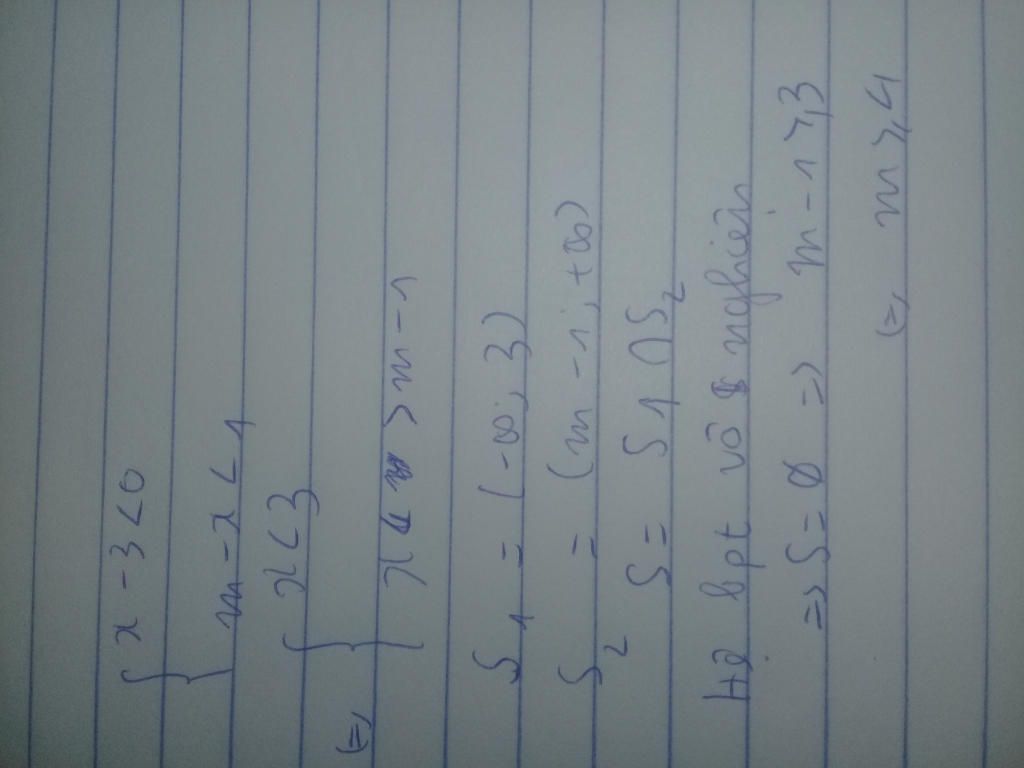 { x - 3 < 0
m - x < 1
<=> { x < 3
x > m - 1
S₁ = (-∞; 3)
S₂ = (m - 1; +∞)
S = S1 ∩ S₂
Hệ bpt vô nghiệm
=> S = ∅ => m - 1 ⩾ 3
<=> m ⩾ 4